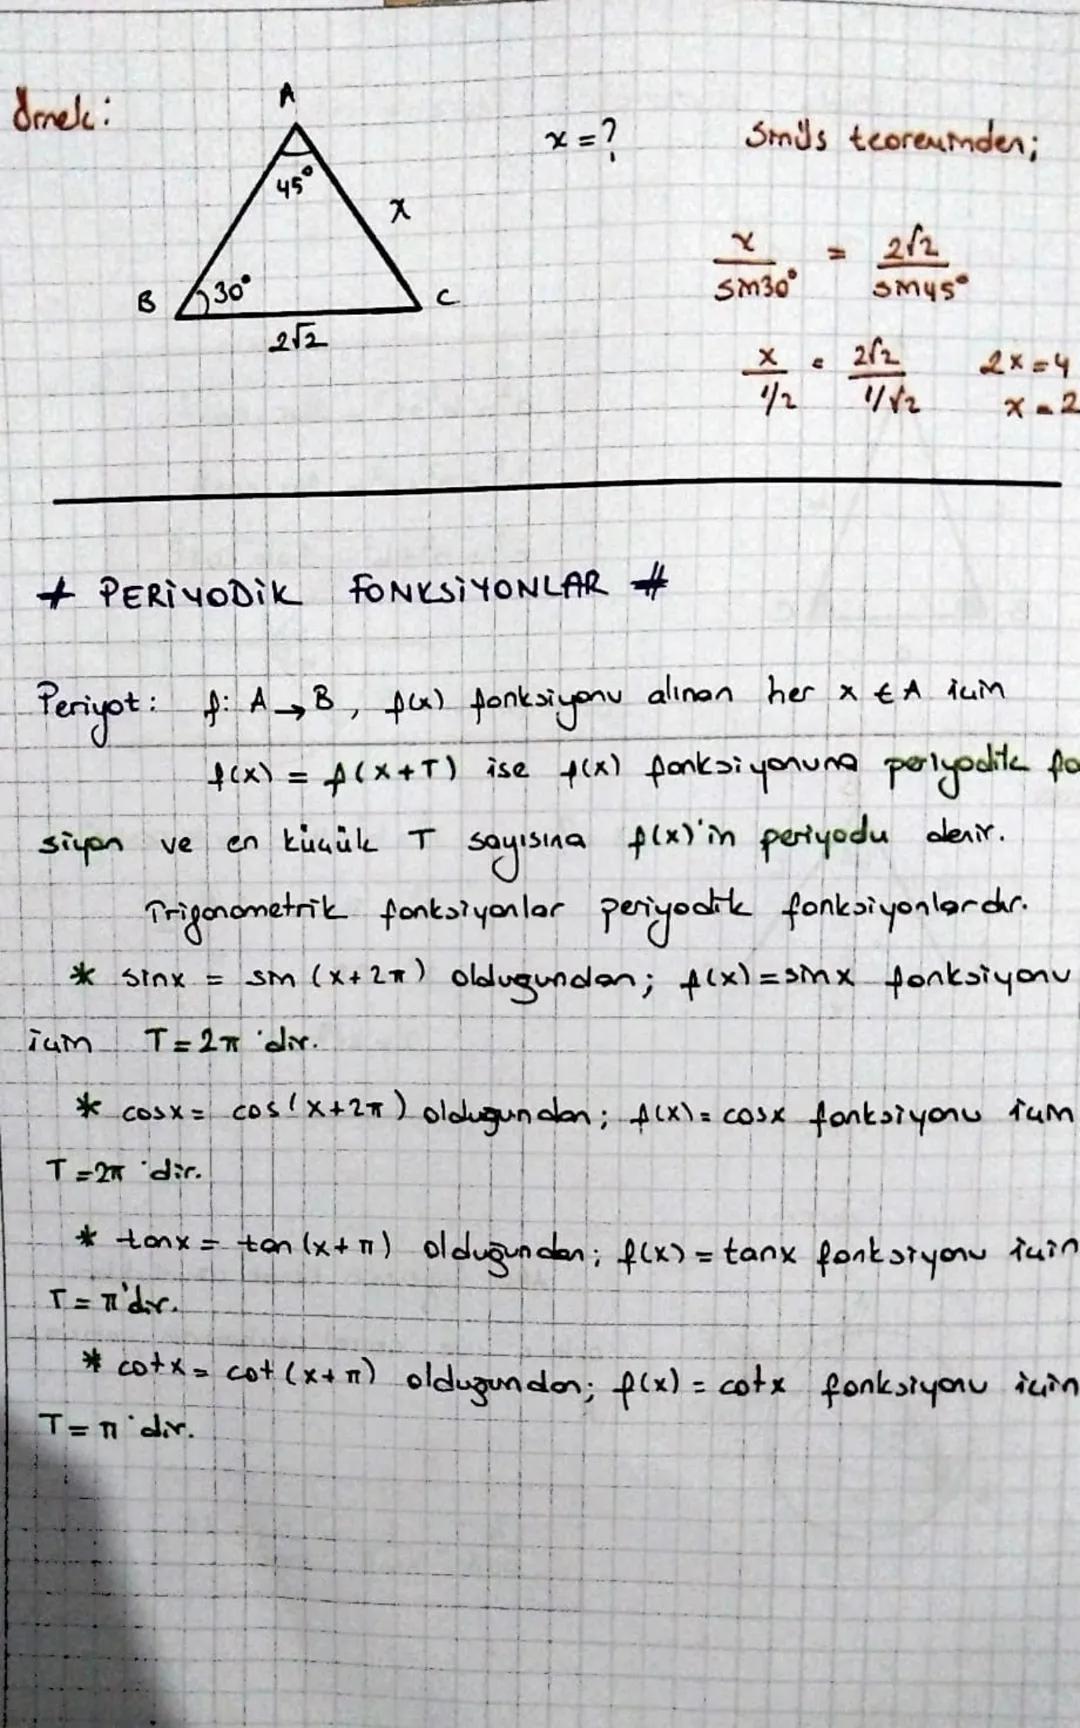 Örnek:
A
45°
x
B
30°
C
2√2
x = ?
Sinüs teoreminden;
x/sin30° = 2√2/sin45°
x/1/2 = 2√2/1/√2 2x = 4
x = 2
# PERİYODİK FONKSİYONLAR #
Periyot: f: A → B, f(x) fonksiyonu alınan her x ∈ A için
f(x) = f(x+T) ise f(x) fonksiyonuna periyodik fo
siyon ve en küçük T sayısına f(x)'in periyodu denir.
Trigonometrik fonksiyonlar periyodik fonksiyonlardır.
* sinx = sin (x+2π) olduğundan; f(x) = sinx fonksiyonu
için T = 2π 'dir.
* cosx = cos(x+2π) olduğundan; f(x) = cosx fonksiyonu için
T = 2π 'dir.
* tanx = tan(x+π) olduğundan; f(x) = tanx fonksiyonu için
T = π'dir.
* cotx = cot(x+π) olduğundan; f(x) = cotx fonksiyonu için
T = π'dir.